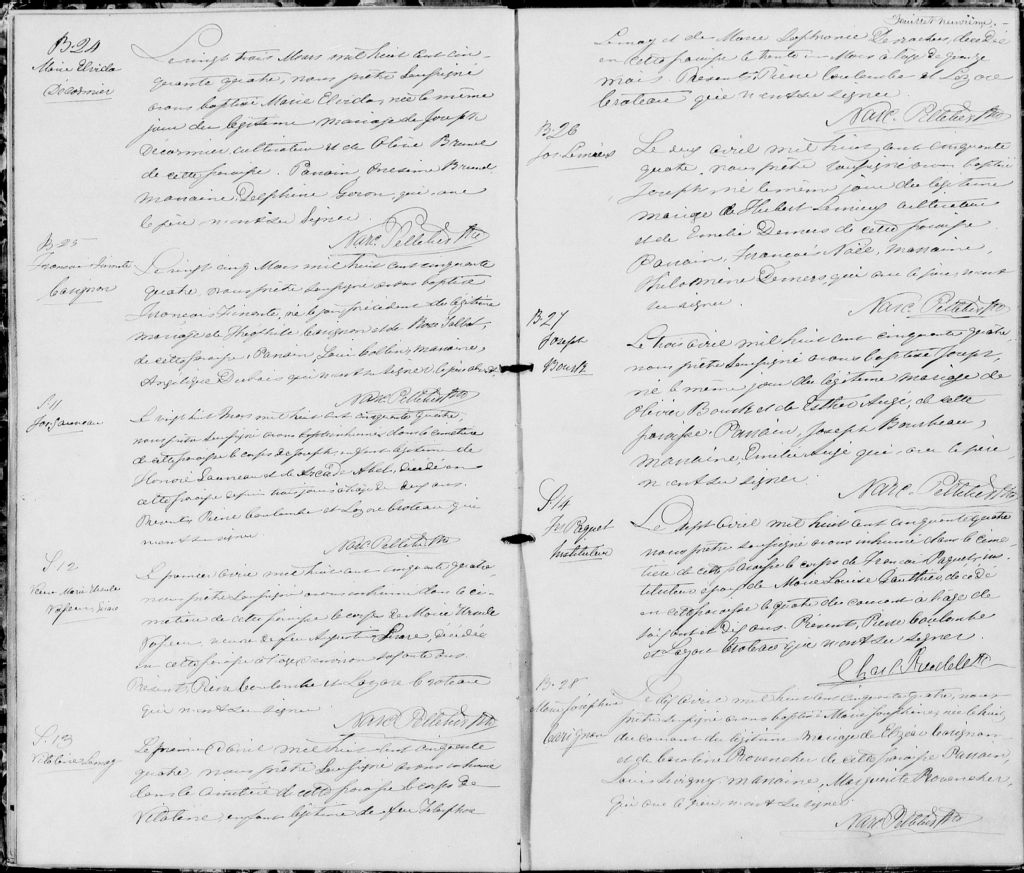 B-24
Marie Elvida
Decormier
Le vingt trois Mars mil huit cent cin-
quante quatre, nous prêtre soussigné
avons baptisé Marie Elvida, née le même
jour du légitime mariage de Joseph
Decormier, cultivateur et de Clorie Brunel
de cette paroisse. Parrain, Onesime Brunel
marraine, Delphine qui avec
le père n'ont su signer.
Narc. Pelletier Ptre
B-25
François Timoté
Carignan
Le vingt cinq Mars mil huit cent cinquante
quatre, nous prêtre soussigné avons baptisé
François Timoté, né le jour précédent du légitime
mariage de Théophile Carignan et de Rose Talbot,
de cette paroisse. Parrain Louis marraine,
Angélique Dubois qui n'ont su signer le père absent.
Narc. Pelletier Ptre
S-11
Jos. Garneau
Le vingt huit Mars mil huit cent cinquante quatre,
nous prêtre soussigné avons inhumé dans le cimetière
de cette paroisse le corps de Joseph enfant légitime de
Honoré Garneau et de décédé en
cette paroisse depuis trois jours à l'age de deux ans.
Présents Pierre Coulombe et Lazare Croteau qui
n'ont su signer.
Narc. Pelletier Ptre
S-12
Marie Ursule
Le premier avril mil huit cent cinquante quatre,
nous prêtre soussigné avons inhumé dans le ci-
metière de cette paroisse le corps de Marie Ursule
veuve de feu Augustin décédée
en cette paroisse à l'age d'environ soixante ans.
Présents, Pierre Coulombe et Lazare Croteau
qui n'ont su signer
Narc. Pelletier Ptre
S-13
Vitaline Lemay
Le premier d'avril mil huit cent cinquante
quatre, nous prêtre soussigné avons inhumé
dans le cimetière de cette paroisse le corps de
Vitaline enfant légitime de feu Télesphore
Feuillet neuvième.
Lemay et de Marie Sophronie Desrochers, décédée
en cette paroisse le trente un Mars à l'age de quinze
mois. Présents Pierre Coulombe et Lazare
Croteau qui n'ont su signer.
Narc. Pelletier Ptre
B-26
Jos Lemieux
Le deux avril mil huit cent cinquante
quatre, nous prêtre soussigné avons baptisé
Joseph né le même jour du légitime
mariage de Hubert Lemieux cultivateur
et de Emelie Demers de cette paroisse.
Parrain, François Noël, marraine,
Philomène Demers, qui avec le père n'ont
su signer.
Narc. Pelletier Ptre
B-27
Joseph
Bourk
Le trois avril mil huit cent cinquante quatre,
nous prêtre soussigné avons baptisé Joseph,
né le même jour du légitime mariage de
Olivier Bourk et de Esther Augé, de cette
paroisse. Parrain, Joseph Bourbeau,
marraine, Emelie Augé qui avec le père
n'ont su signer.
Narc. Pelletier Ptre
S-14
Frs Paquet
Instituteur
Le Dix sept avril mil huit cent cinquante quatre
nous prêtre soussigné avons inhumé dans le cime-
tière de cette paroisse le corps de François Paquet, ins-
tituteur époux de Marie Louise Gauthier décédé
en cette paroisse le quatre du courant à l'age de
soixante et dix ans. Présents, Pierre Coulombe
et Lazare Croteau qui n'ont su signer.
Chas. Ptre
B-28
Marie Joséphine
Carignan
Le dix avril mil huit cent cinquante quatre, nous
prêtre soussigné avons baptisé Marie Joséphine, née le huit
du courant du légitime mariage de Elzéar Carignan
et de Caroline Provencher de cette paroisse. Parrain,
Louis marraine, Marguerite Provencher,
qui avec le père n'ont su signer.
Narc. Pelletier Ptre